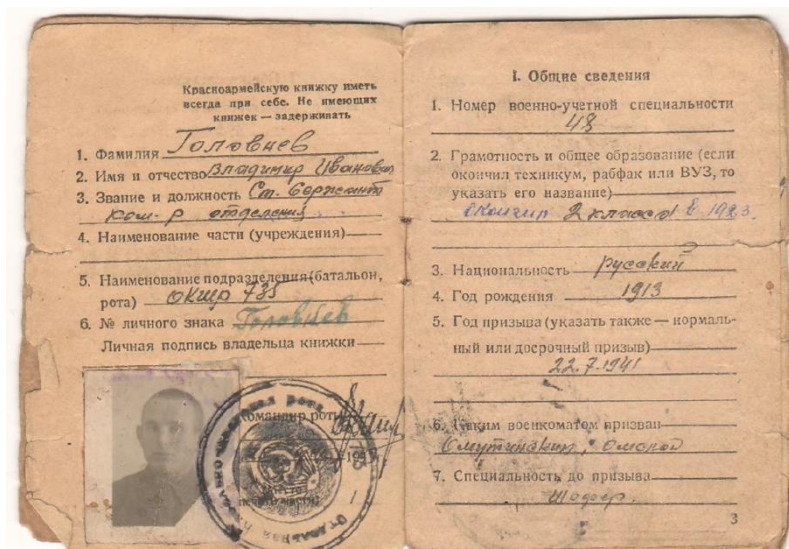 Красноармейскую книжку иметь
всегда при себе. Не имеющих
книжек — задерживать
1. Фамилия Головнев
2. Имя и отчество Владимир Иванович
3. Звание и должность Ст. Сержант
ком-р отделения
4. Наименование части (учреждения)
5. Наименование подразделения (батальон,
рота) ОКШР 785
6. № личного знака Головнев
Личная подпись владельца книжки
Командир роты
I. Общие сведения
1. Номер военно-учетной специальности
48
2. Грамотность и общее образование (если
окончил техникум, рабфак или ВУЗ, то
указать его название)
окончил 2 класса в 1923.
3. Национальность русский
4. Год рождения 1913
5. Год призыва (указать также — нормаль-
ный или досрочный призыв)
22.7.1941
6. Каким военкоматом призван
7. Специальность до призыва
Шофер.
3